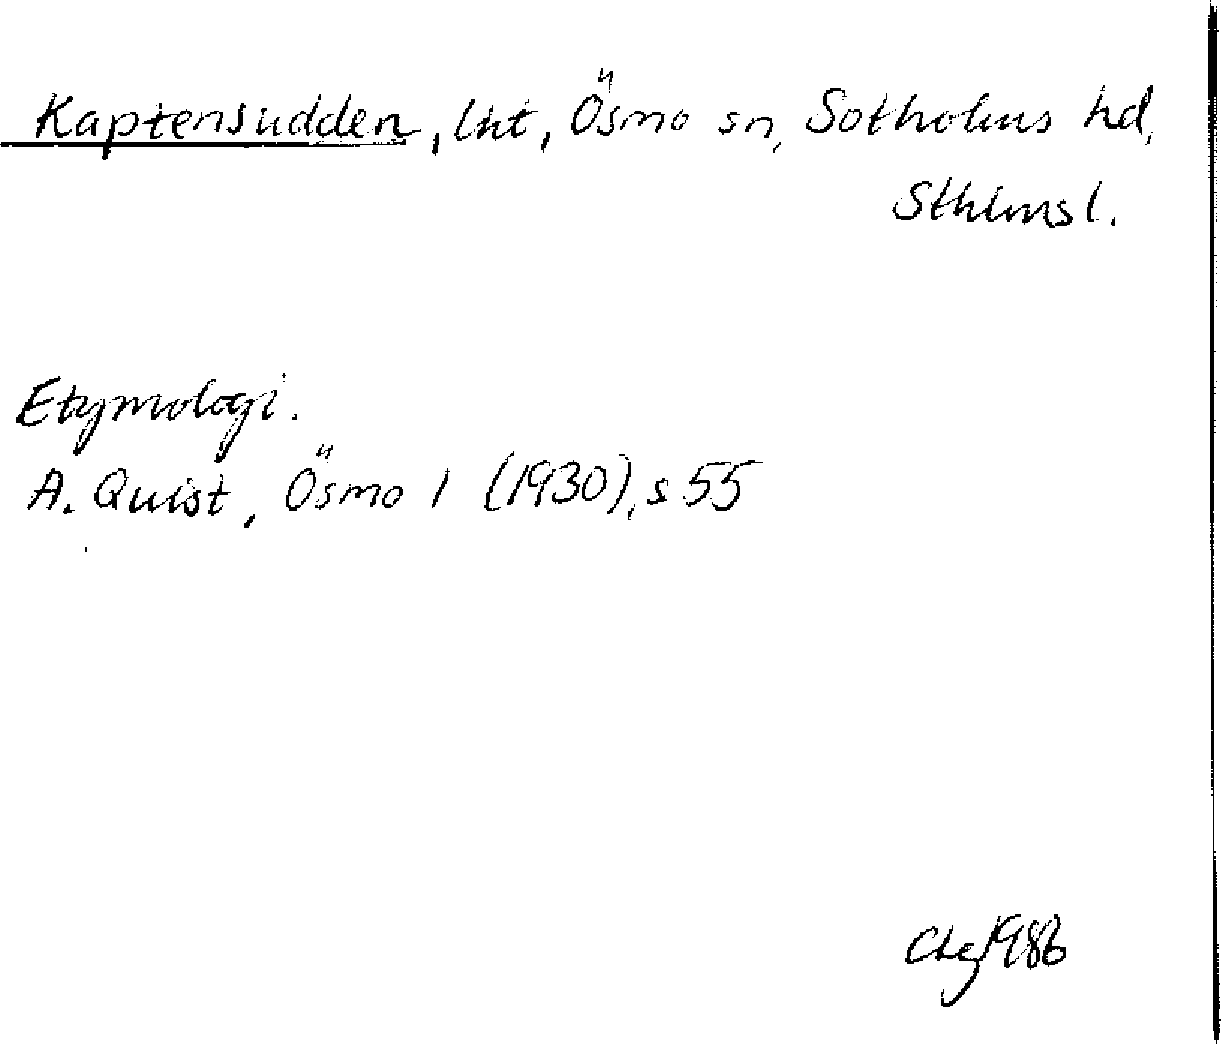 Kaptensudden, lht, Ösmo sn, Sotholms hd,
Sthlms l.
Etymologi.
A. Quist, Ösmo 1 (1930), s 55
1986